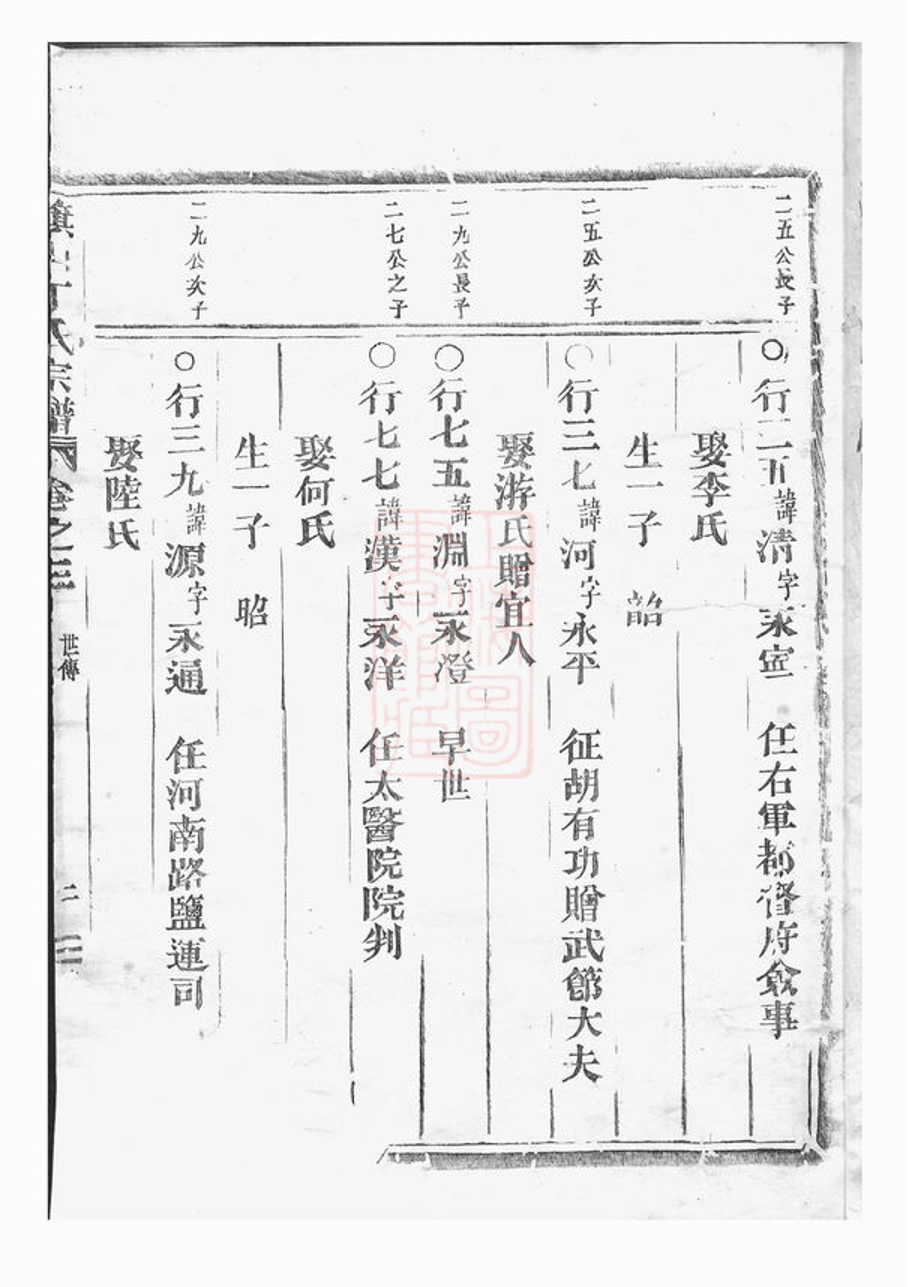 二五公長子
○行二五諱清字永寍 任右軍都督府僉事
娶李氏
生一子 韶
二五公次子
○行三七諱河字永平 征胡有功贈武節大夫
娶游氏贈宜人
二九公長子
○行七五諱淵字永澄 早世
二七公之子
○行七七諱漢字永洋 任太醫院院判
娶何氏
生一子 昭
二九公次子
○行三九諱源字永通 任河南路鹽運司
娶陸氏
丁氏宗譜 卷之三 世傳 二